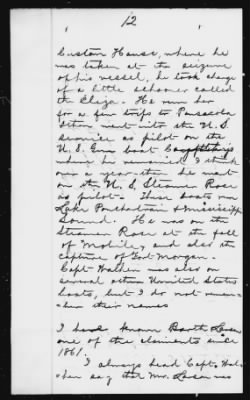 12
Custom House, where he
was taken at the seizure
of his vessel, he took charge
of a little schooner called
the Eliza. He run her
for a few trips to Pensacola
then went into the U.S.
service as pilot on the
U.S. Gun boat
where he remained, I think
over a year then he went
on the U.S. Steamer Rose
as pilot. These boats run
Lake Ponchatrain & Mississippi
Sound. He was on the
Steamer Rose at the fall
of Mobile, and also the
capture of Fort Morgan.
Capt. Walden was also on
several other United States
boats, but I do not remem-
ber their names
I have known Barth
one of the claimants since
1861.
I always heard Capt. Wal-
den say that Mr. was